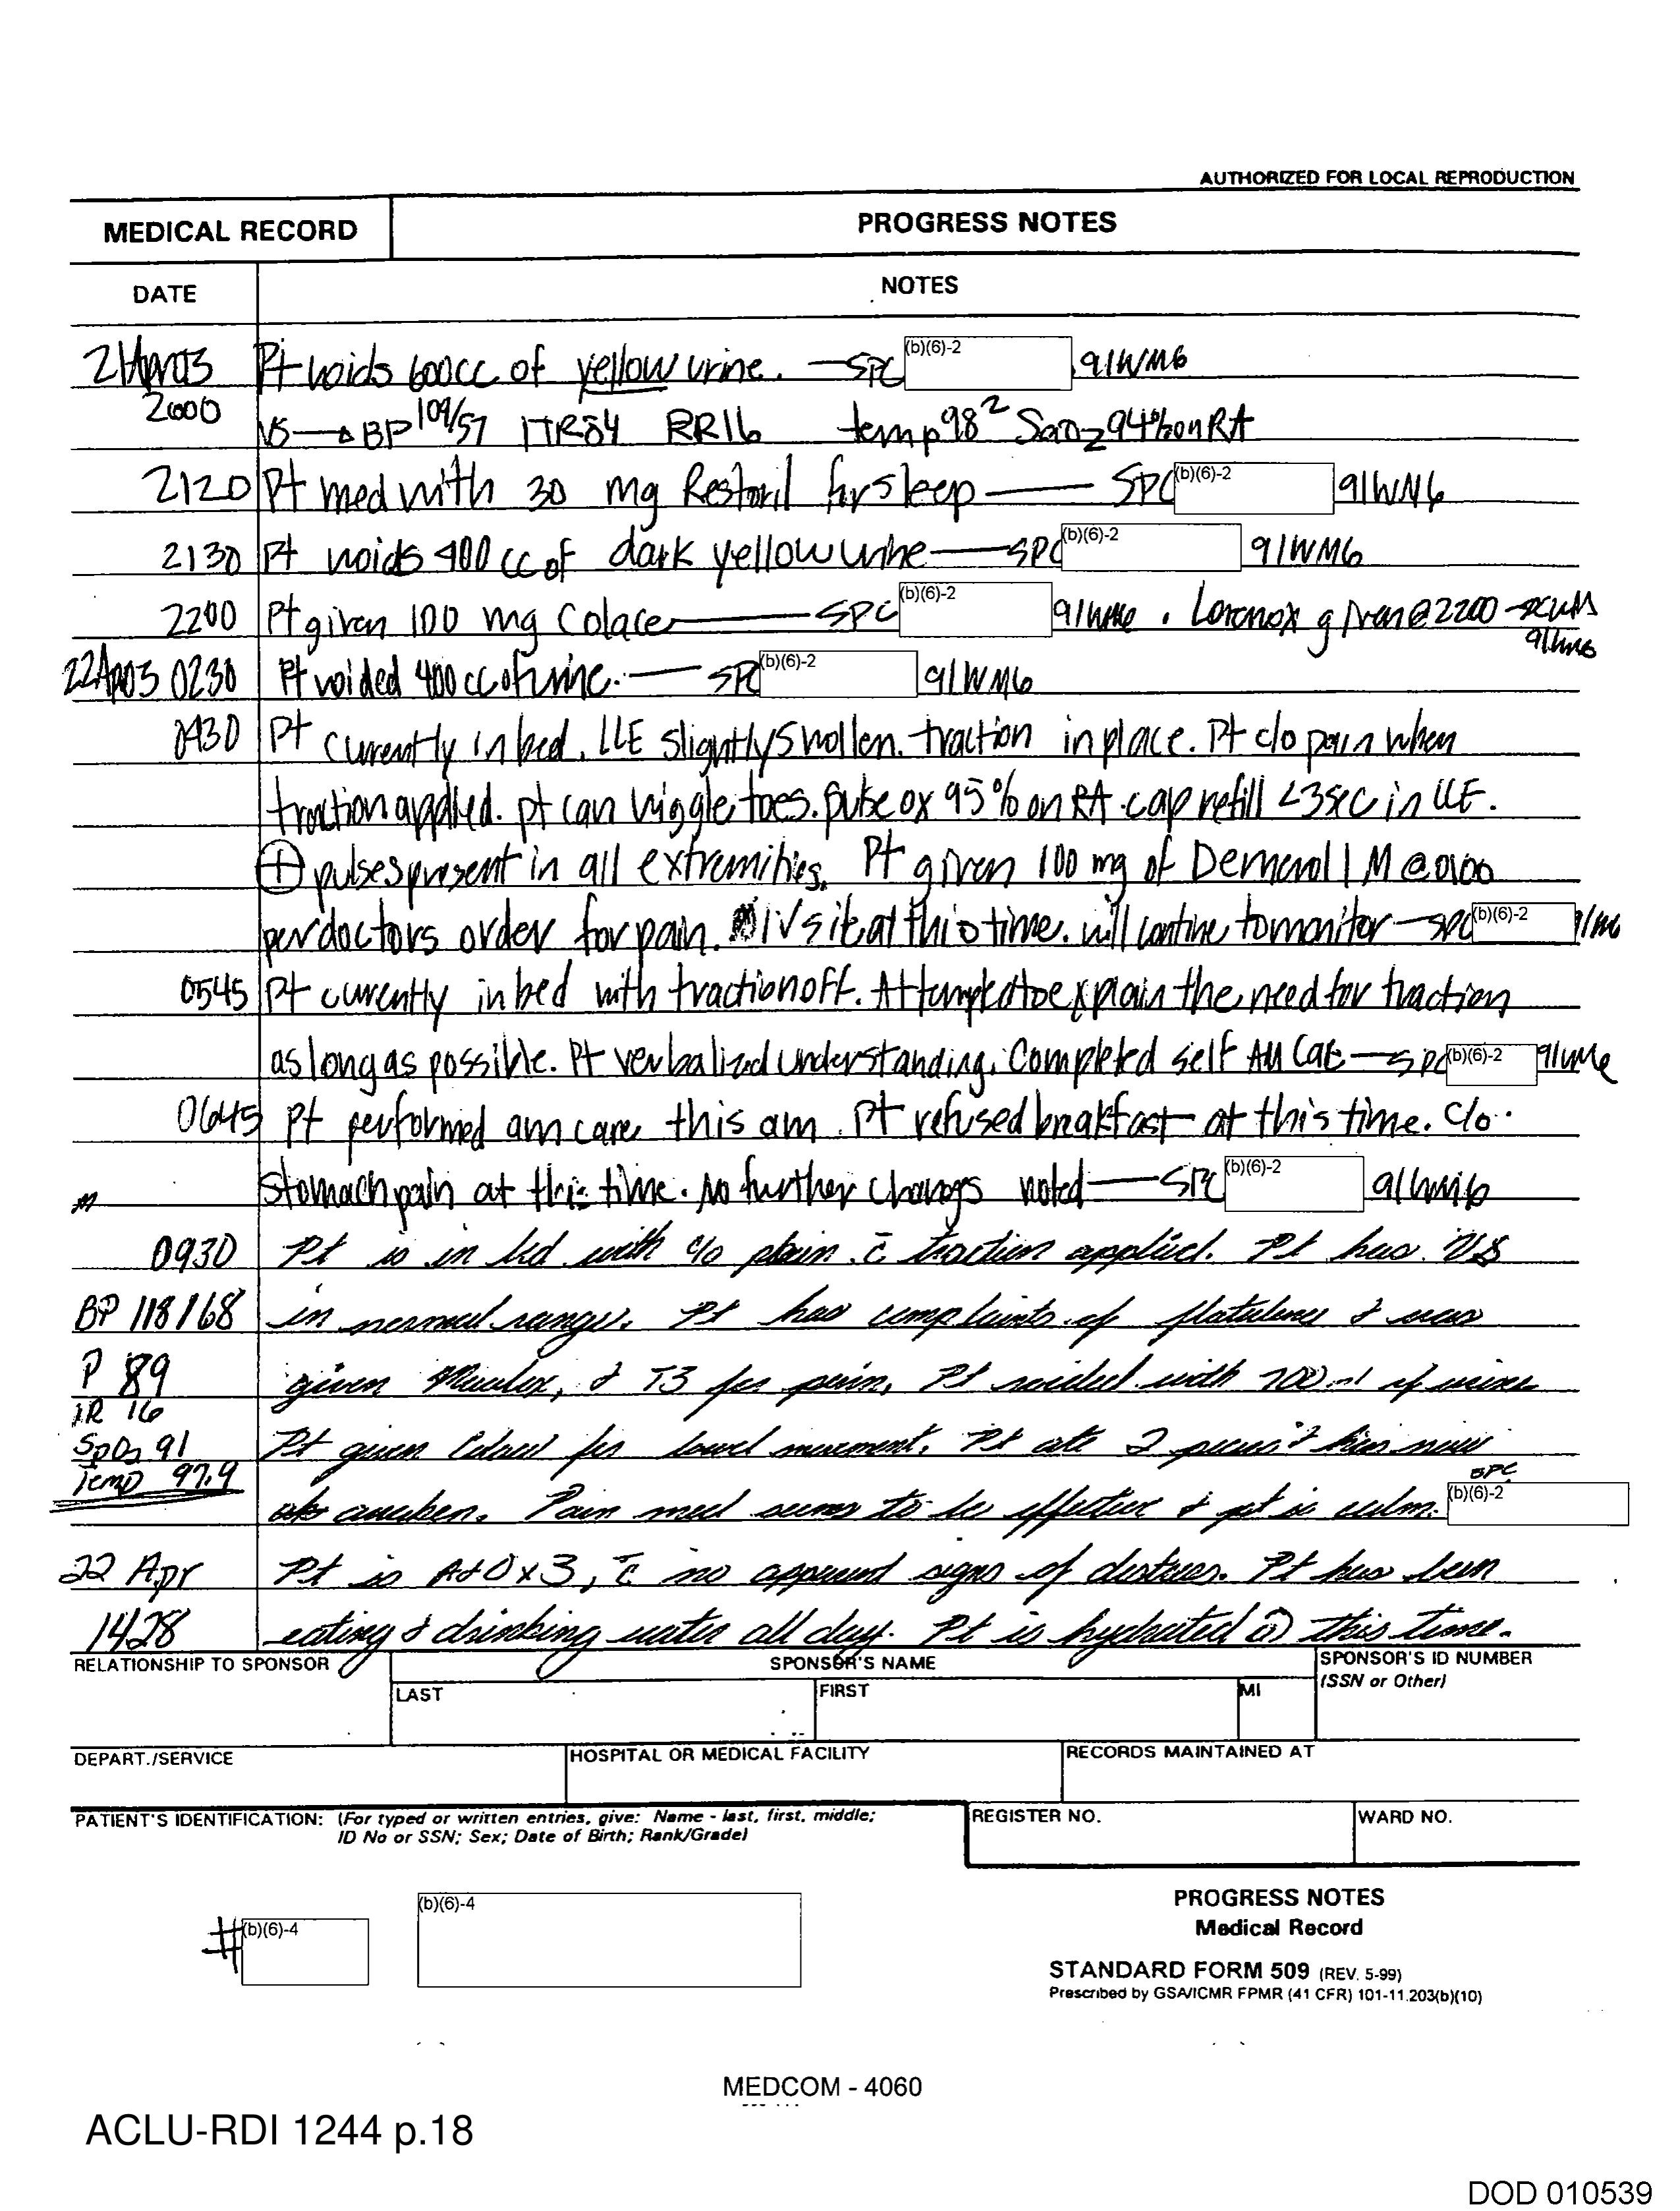 AUTHORIZED FOR LOCAL REPRODUCTION
MEDICAL RECORD PROGRESS NOTES
DATE NOTES
21Apr03 Pt voids 600cc of yellow urine. — SPC (b)(6)-2 91WM6
2000 VS → BP 109/57 HR84 RR16 temp 98² SaO2 94% on RA
2120 Pt med with 30 mg Restoril for sleep — SPC (b)(6)-2 91WM6
2130 Pt voids 400 cc of dark yellow urine — SPC (b)(6)-2 91WM6
2200 Pt given 100 mg Colace — SPC (b)(6)-2 91WM6 . Lovenox given @ 2200
91WM6
22Apr03 0230 Pt voided 400 cc of urine. — SPC (b)(6)-2 91WM6
0430 Pt currently in bed. LLE slightly swollen. traction in place. Pt c/o pain when
traction applied. pt can wiggle toes. pulse ox 95% on RA. cap refill <3 sec in LLE.
⊕ pulses present in all extremities. Pt given 100 mg of Demerol IM @
per doctors order for pain. IV site at this time. will contine to monitor — SPC (b)(6)-2
0545 Pt currently in bed with traction off. Attempted to explain the need for traction
as long as possible. Pt verbalized understanding. Completed self AM Care — SPC (b)(6)-2 91WM6
0645 Pt performed am care this am. Pt refused breakfast at this time. c/o
stomach pain at this time. No further changes noted — SPC (b)(6)-2 91WM6
0930 Pt is in bed with c/o pain c̄ traction applied. Pt has VS
BP 118/68 in normal range. Pt has complaints of flatulence & was
P 89 given & T3 for pain, Pt voided with 700 ml of urine
R 16
SpO2 91 Pt given for bowel movement. Pt ate 2
Temp 97.9 Pain med seems to be effective & pt is calm. SPC (b)(6)-2
22 Apr Pt is A+O x 3, c̄ no apparent signs of distress. Pt has been
1428 eating & drinking water all day. Pt is hydrated @ this time.
RELATIONSHIP TO SPONSOR SPONSOR'S NAME SPONSOR'S ID NUMBER
LAST FIRST MI (SSN or Other)
DEPART./SERVICE HOSPITAL OR MEDICAL FACILITY RECORDS MAINTAINED AT
PATIENT'S IDENTIFICATION: (For typed or written entries, give: Name - last, first, middle; REGISTER NO. WARD NO.
ID No or SSN; Sex; Date of Birth; Rank/Grade)
# (b)(6)-4 (b)(6)-4
PROGRESS NOTES
Medical Record
STANDARD FORM 509 (REV. 5-99)
Prescribed by GSA/ICMR FPMR (41 CFR) 101-11.203(b)(10)
MEDCOM - 4060
ACLU-RDI 1244 p.18
DOD 010539